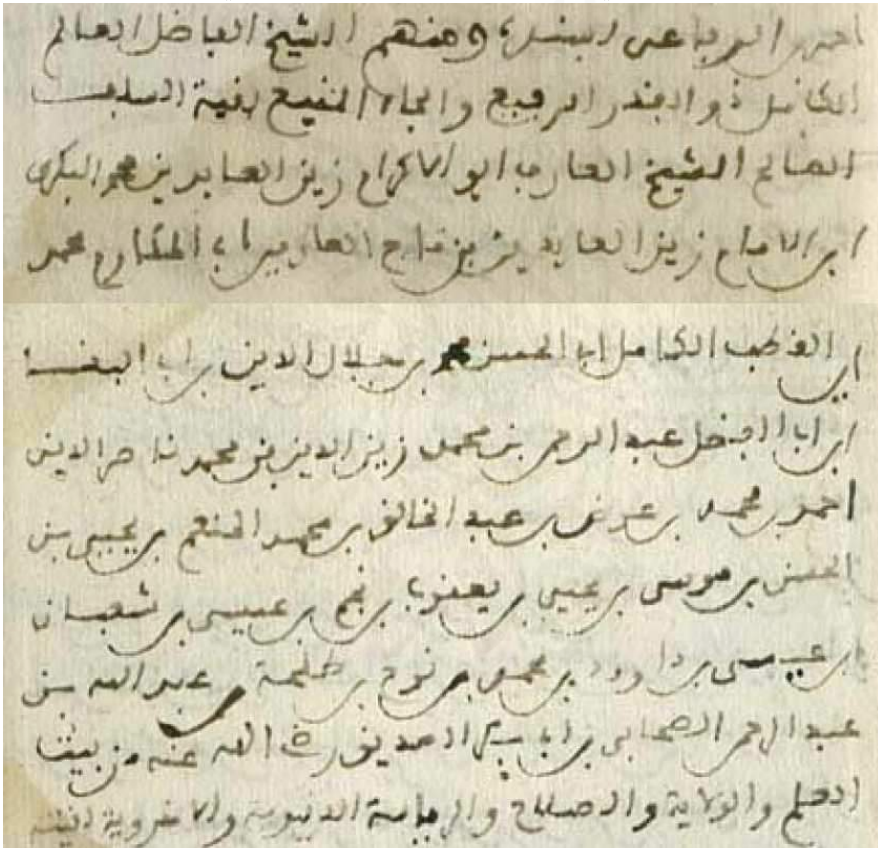 ومنهم الشيخ الفاضل العالم
الكامل ذو القدر الرفيع والجاه المنيع بقية السلف
الصالح الشيخ العارف ابو الاكرام زين العابدين بن محمد البكري
ابن الامام زين العابدين بن تاج العارفين اب المكارم محمد
ابن القطب الكامل ابا الحسن محمد بن جلال الدين بن اب البقا
ابن ابا الفضل عبد الرحمن بن محمد زين الدين بن محمد ناصر الدين
احمد بن محمد بن عوض بن عبد الخالق بن محمد المنعم بن يحيى بن
الحسن بن موسى بن يحيى بن يعقوب بن نجم بن عيسى بن شعبان
بن عيسى بن داوود بن محمد بن نوح بن طلحة بن عبد الله بن
عبد الرحمن الصحابي بن ابا بكر الصديق رضي الله عنه من بيت
العلم والولاية والصلاح والرياسة الدنيوية والاخروية